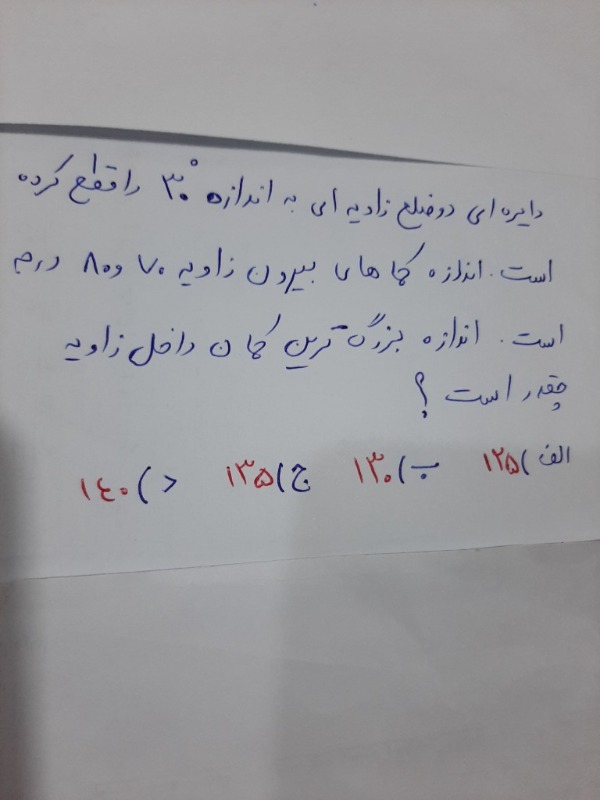 دایره ای دو ضلع زاویه ای به اندازه ۳۰° را قطع کرده
است. اندازه کمان های بیرون زاویه ۷۰ و ۸۰ درجه
است. اندازه بزرگ ترین کمان داخل زاویه
چقدر است ؟
الف) ۱۲۵ ب) ۱۳۰ ج) ۱۳۵ د) ۱۴۰